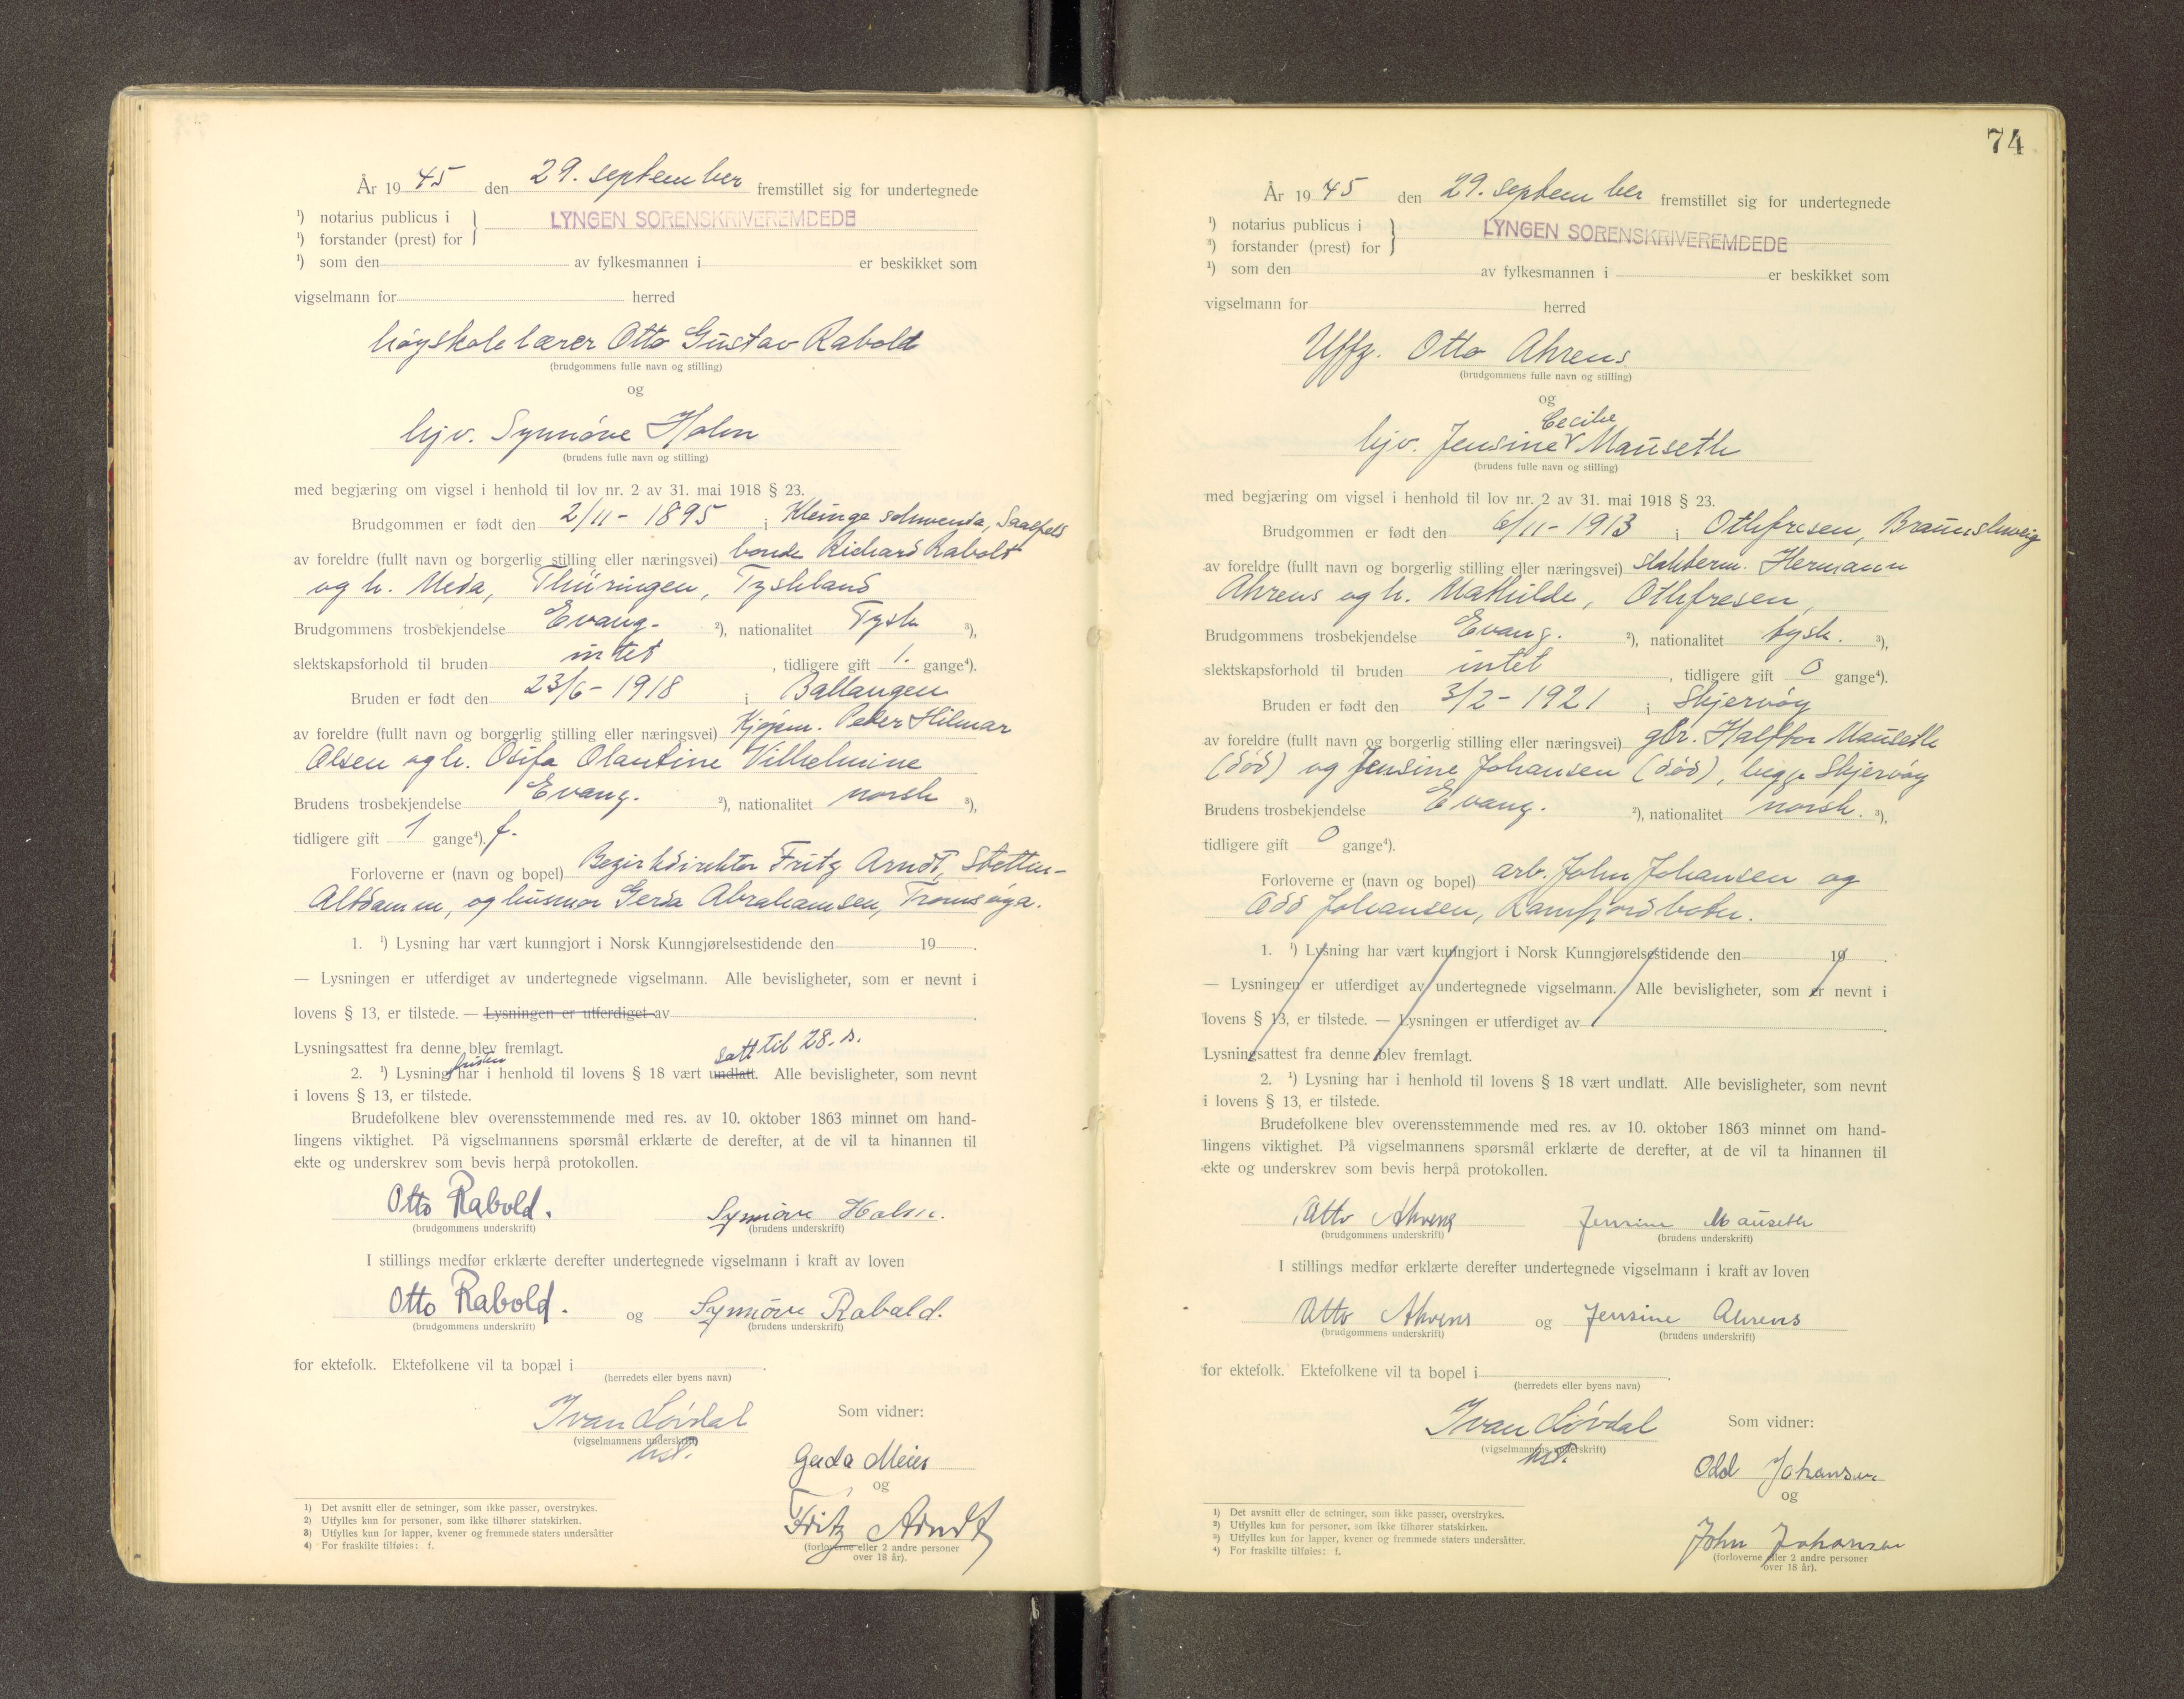 År 19 45 den 29. september fremstillet sig for undertegnede
¹) notarius publicus i } LYNGEN SORENSKRIVEREMDEDE
¹) forstander (prest) for
¹) som den av fylkesmannen i er beskikket som
vigselmann for herred
höyskolelærer Otto Gustav Rabold
(brudgommens fulle navn og stilling)
og
hjv. Synnöve Holm
(brudens fulle navn og stilling)
med begjæring om vigsel i henhold til lov nr. 2 av 31. mai 1918 § 23.
Brudgommen er født den 2/11 - 1895 i Kleinge schwenda, Saalfeld
av foreldre (fullt navn og borgerlig stilling eller næringsvei) bonde Richard Rabold
og h. Meda, Thüringen, Tyskland
Brudgommens trosbekjendelse Evang. ²), nationalitet Tysk ³),
slektskapsforhold til bruden intet , tidligere gift 1. gange⁴).
Bruden er født den 23/6 - 1918 i Ballangen
av foreldre (fullt navn og borgerlig stilling eller næringsvei) Peder Hilmar
Olsen og h. Olantine Vilhelmine
Brudens trosbekjendelse Evang. ²), nationalitet norsk ³),
tidligere gift 1 gange⁴). f.
Forloverne er (navn og bopel) Bezirksdirektor Fritz Arndt, Stettin-
Altdamm, og husmor Gerda Abrahamsen, Tromsöya.
1. ¹) Lysning har vært kunngjort i Norsk Kunngjørelsestidende den 19 .
— Lysningen er utferdiget av undertegnede vigselmann. Alle bevisligheter, som er nevnt i
lovens § 13, er tilstede. — Lysningen er utferdiget av .
Lysningsattest fra denne blev fremlagt. satt til 28. s.
2. ¹) Lysnings fristen har i henhold til lovens § 18 vært undlatt. Alle bevisligheter, som nevnt
i lovens § 13, er tilstede.
Brudefolkene blev overensstemmende med res. av 10. oktober 1863 minnet om hand-
lingens viktighet. På vigselmannens spørsmål erklærte de derefter, at de vil ta hinannen til
ekte og underskrev som bevis herpå protokollen.
Otto Rabold. Synnöve Holm.
(brudgommens underskrift) (brudens underskrift)
I stillings medfør erklærte derefter undertegnede vigselmann i kraft av loven
Otto Rabold. og Synnöve Rabold.
(brudgommens underskrift) (brudens underskrift)
for ektefolk. Ektefolkene vil ta bopæl i .
(herredets eller byens navn)
Ivan Lövdal Som vidner:
(vigselmannens underskrift)
Gerda Meier
og
Fritz Arndt
(forloverne eller 2 andre personer
over 18 år).
1) Det avsnitt eller de setninger, som ikke passer, overstrykes.
2) Utfylles kun for personer, som ikke tilhører statskirken.
3) Utfylles kun for lapper, kvener og fremmede staters undersåtter
4) For fraskilte tilføies: f.
74
År 19 45 den 29. september fremstillet sig for undertegnede
¹) notarius publicus i } LYNGEN SORENSKRIVEREMDEDE
³) forstander (prest) for
¹) som den av fylkesmannen i er beskikket som
vigselmann for herred
Uffz. Otto Ahrens
(brudgommens fulle navn og stilling)
og
Cecilie
hjv. Jensine V Mauseth
(brudens fulle navn og stilling)
med begjæring om vigsel i henhold til lov nr. 2 av 31. mai 1918 § 23.
Brudgommen er født den 6/11 - 1913 i Othfresen, Braunshweig
av foreldre (fullt navn og borgerlig stilling eller næringsvei) slakterm. Hermann
Ahrens og h. Mathilde, Othfresen,
Brudgommens trosbekjendelse Evang. ²), nationalitet tysk. ³),
slektskapsforhold til bruden intet , tidligere gift 0 gange⁴).
Bruden er født den 3/2 - 1921 i Skjervöy
av foreldre (fullt navn og borgerlig stilling eller næringsvei) Mauseth
(död) og Jensine Johansen (död), begge Skjervöy
Brudens trosbekjendelse Evang. ²), nationalitet norsk. ³),
tidligere gift 0 gange⁴).
Forloverne er (navn og bopel) arb. John Johansen og
Odd Johansen, Ramfjordbotn.
1. ¹) Lysning har vært kunngjort i Norsk Kunngjørelsestidende den 19 .
— Lysningen er utferdiget av undertegnede vigselmann. Alle bevisligheter, som er nevnt i
lovens § 13, er tilstede. — Lysningen er utferdiget av .
Lysningsattest fra denne blev fremlagt.
2. ¹) Lysning har i henhold til lovens § 18 vært undlatt. Alle bevisligheter, som nevnt
i lovens § 13, er tilstede.
Brudefolkene blev overensstemmende med res. av 10. oktober 1863 minnet om hand-
lingens viktighet. På vigselmannens spørsmål erklærte de derefter, at de vil ta hinannen til
ekte og underskrev som bevis herpå protokollen.
Otto Ahrens Jensine Mauseth
(brudgommens underskrift) (brudens underskrift)
I stillings medfør erklærte derefter undertegnede vigselmann i kraft av loven
Otto Ahrens og Jensine Ahrens
(brudgommens underskrift) (brudens underskrift)
for ektefolk. Ektefolkene vil ta bopel i .
(herredets eller byens navn)
Ivan Lövdal Som vidner:
(vigselmannens underskrift)
Odd Johansen
og
John Johansen
(forloverne eller 2 andre personer
over 18 år).
1) Det avsnitt eller de setninger, som ikke passer, overstrykes.
2) Utfylles kun for personer, som ikke tilhører statskirken.
3) Utfylles kun for lapper, kvener og fremmede staters undersåtter.
4) For fraskilte tilføies: f.